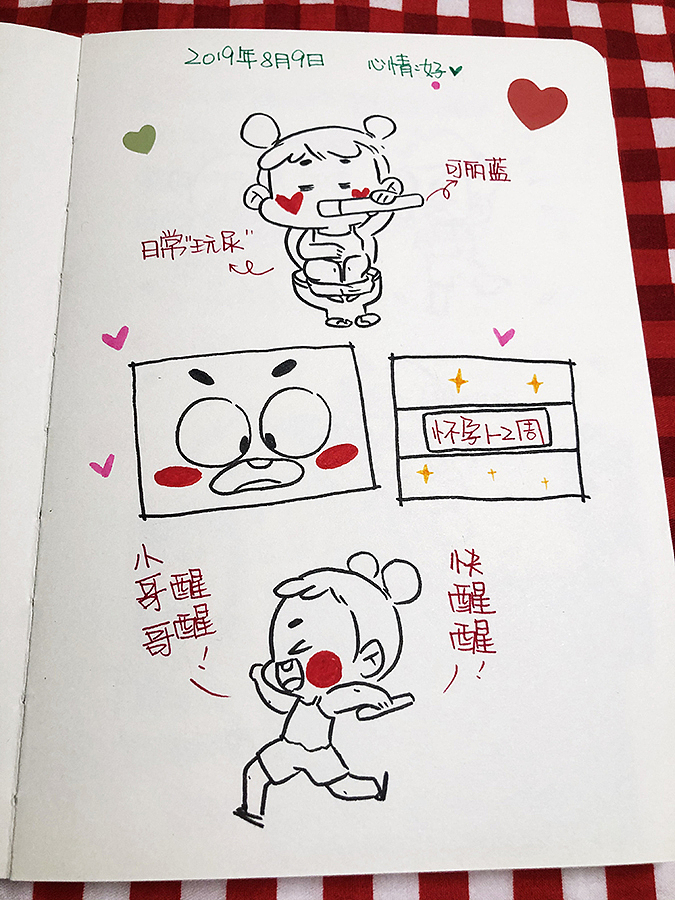 2019年8月9日 心情:好
可丽蓝
日常"玩尿"
怀孕1-2周
小哥哥
醒醒!
快醒醒!